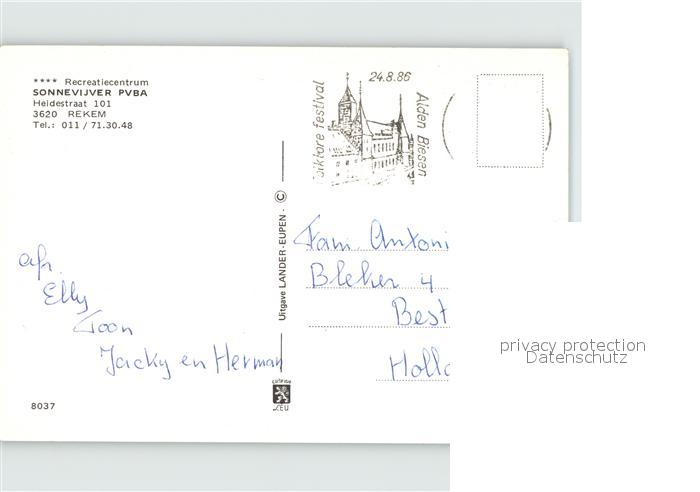 **** Recreatiecentrum
SONNEVIJVER PVBA
Heidestraat 101
3620 REKEM
Tel.: 011 / 71.30.48
24.8.86
folklore festival
Alden Biesen
Uitgave LANDER-EUPEN - ©
Fam. Antoni
Bleker 4
Best
Holla
afz.
Elly
Toon
Jacky en Herman
8037
CEU
privacy protection
Datenschutz